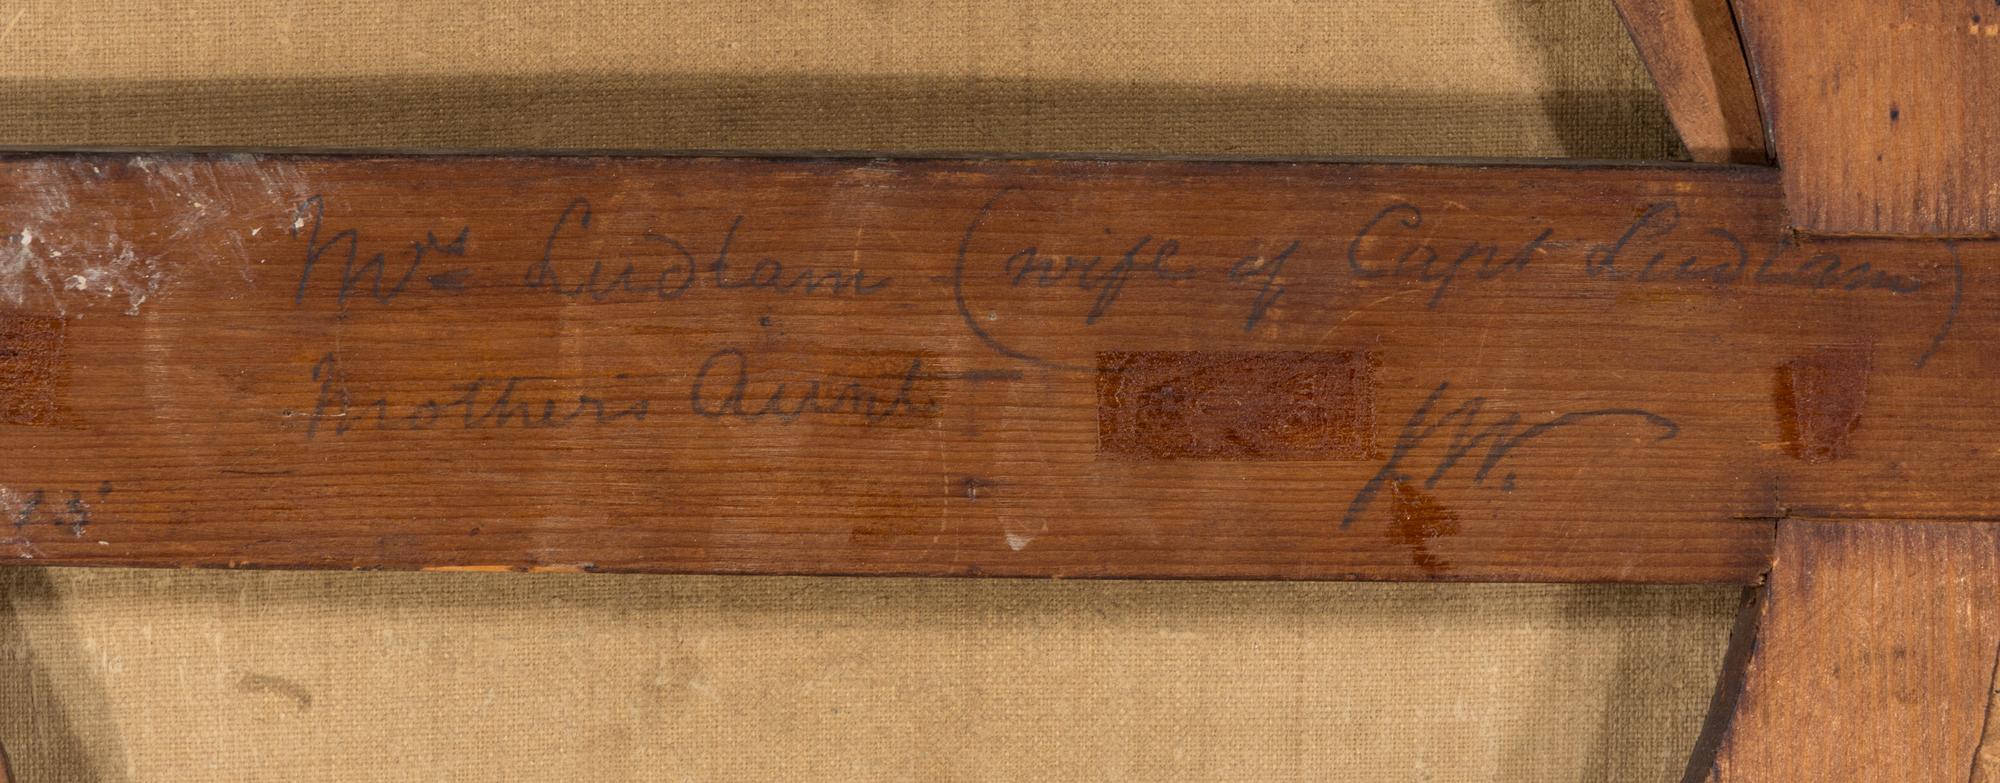 Mrs Ludlam (wife of Capt Ludlam)
Mother's Aunt
J.W.